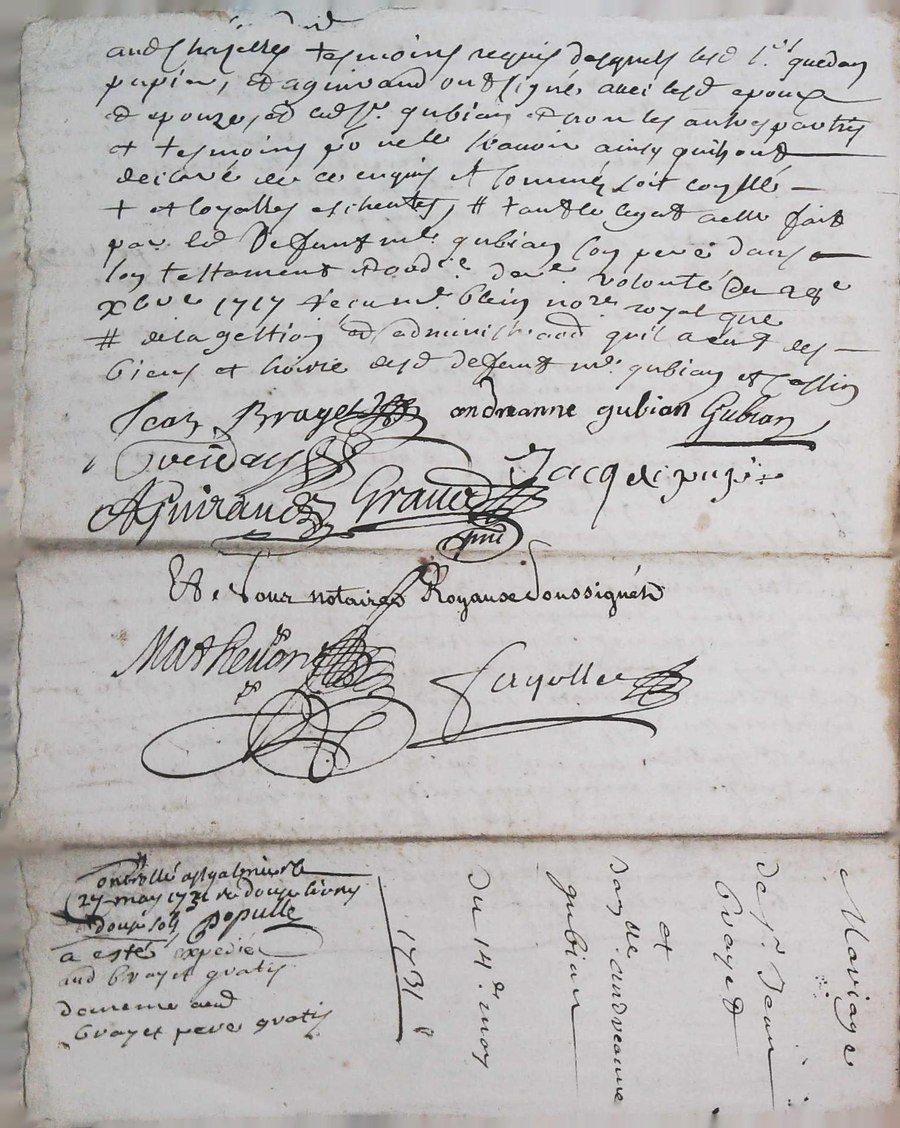 aud Chazelles tesmoins requis desquels lesd. sr. quedan
papier, et aguiraud ont signé avec lesd epoux
et epouze, et led sr. gubian et non les autres parties
et tesmoins pour ne le scavoir ainsy quils ont
declaré de ce enquis et sommés soit conllé
+ et loyalles escheutes, # tant le legat a elle fait
par led Deffunt mr. gubian son pere dans
son testament de volonté du 28e
xbre 1717 receu me. blein nore royal que
# de la gestion et administraon quil a eu des
biens et hoirie dud deffunt mr. gubian
Jean Brayet andreanne gubian Gubian
Jacq
Aguiraud Graud
Et Nous notaires Royaux Soussignés
Mathevon
Controllé a St galmier le
27 may 1731 re douze livres
douze sols Populle
a esté expedié
aud brayet gratis
domeme aud
brayet pere gratis
1731
Mariage
de sr. Jean
brayet
et
daylle andreanne
gubian
du 14e. may